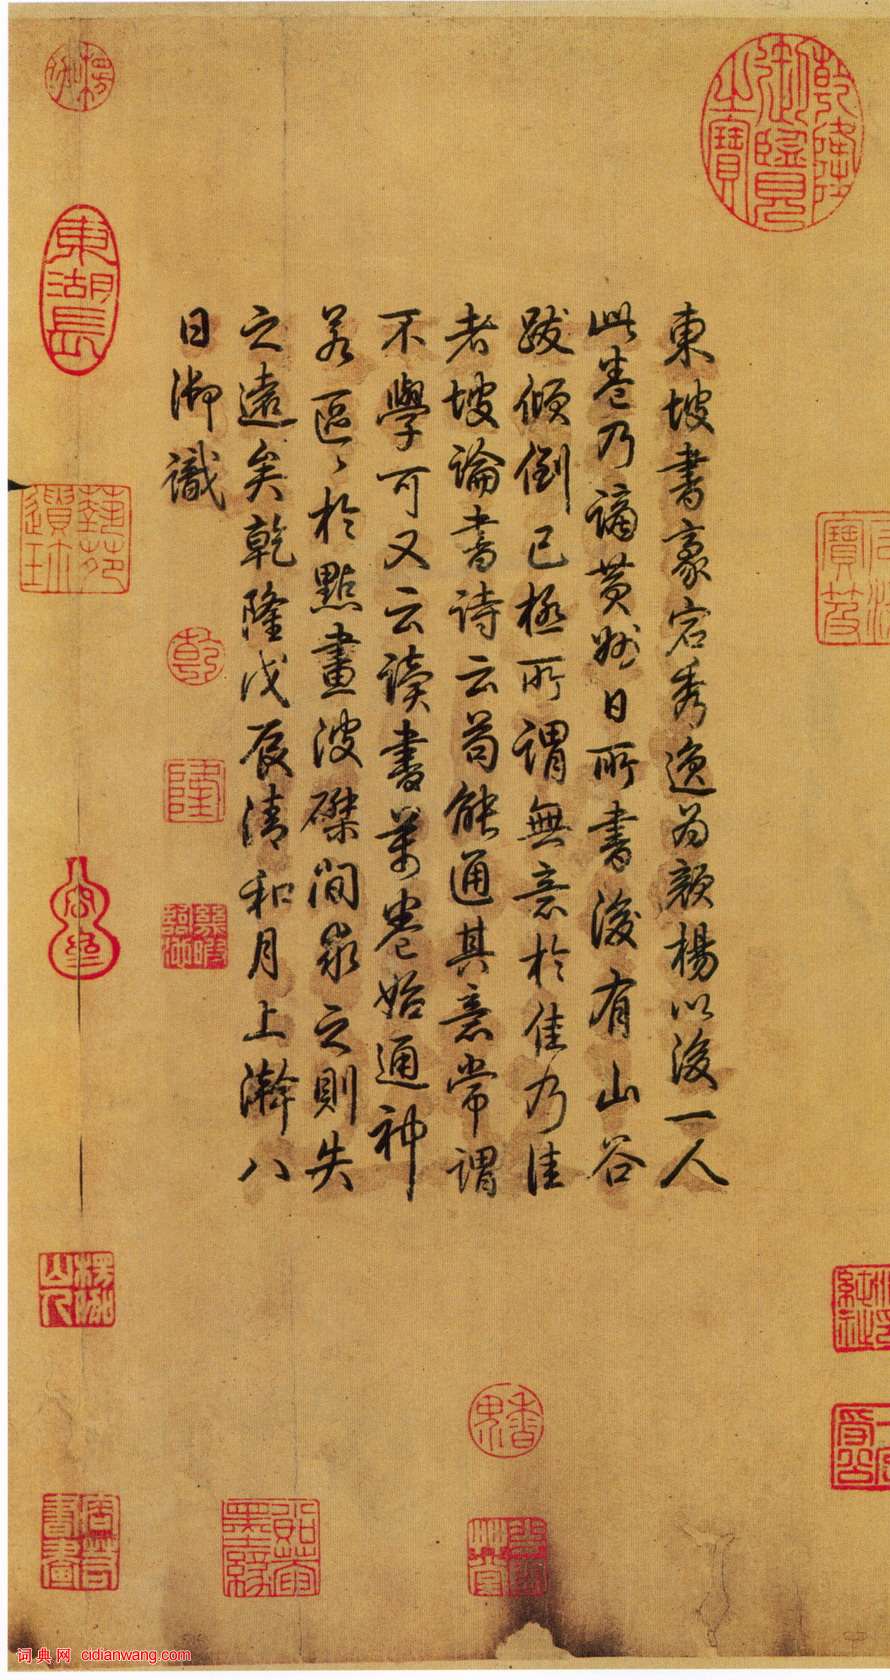 東坡書豪宕秀逸為顏楊以後一人
此卷乃謫黃州日所書後有山谷
跋傾倒已極所謂無意於佳乃佳
者坡論書詩云苟能通其意常謂
不學可又云讀書萬卷始通神
若區〻於點畫波磔間求之則失
之遠矣乾隆戊辰清和月上澣八
日御識
乾隆御覽之寶
東湖長
乾
隆
楞伽山人
詞典網 cidianwang.com